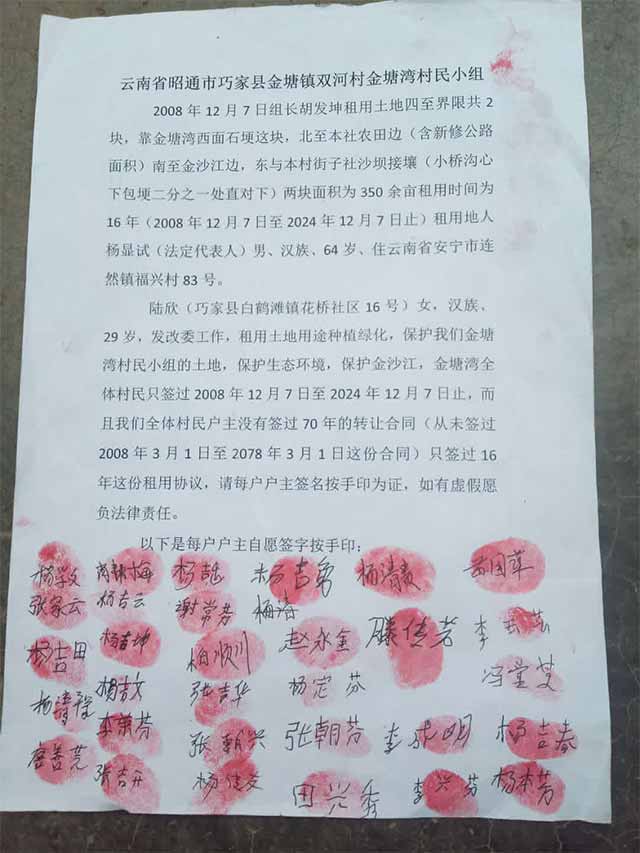 云南省昭通市巧家县金塘镇双河村金塘湾村民小组
2008 年 12 月 7 日组长胡发坤租用土地四至界限共 2
块，靠金塘湾西面石埂这块，北至本社农田边（含新修公路
面积）南至金沙江边，东与本村街子社沙坝接壤（小桥沟心
下包埂二分之一处直对下）两块面积为 350 余亩租用时间为
16 年（2008 年 12 月 7 日至 2024 年 12 月 7 日止）租用地人
杨显试（法定代表人）男、汉族、64 岁、住云南省安宁市连
然镇福兴村 83 号。
陆欣（巧家县白鹤滩镇花桥社区 16 号）女，汉族、
29 岁，发改委工作，租用土地用途种植绿化，保护我们金塘
湾村民小组的土地，保护生态环境，保护金沙江，金塘湾全
体村民只签过 2008 年 12 月 7 日至 2024 年 12 月 7 日止，而
且我们全体村民户主没有签过 70 年的转让合同（从未签过
2008 年 3 月 1 日至 2078 年 3 月 1 日这份合同）只签过 16
年这份租用协议，请每户户主签名按手印为证，如有虚假愿
负法律责任。
以下是每户户主自愿签字按手印：
杨学文 杨吉勇 杨清贵
张家云 杨吉云 谢常芳 杨海
杨吉田 杨吉坤 柏顺川 赵永金 滕传芳
杨吉文 张吉华 杨定芬 冯堂芝
李荣芬 张朝兴 张朝芬 李成明 杨吉春
唐善荒 张吉开 田兴秀 李兴芬 杨本芳